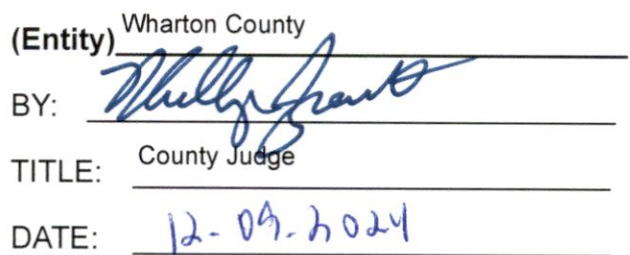 (Entity) Wharton County
BY:
TITLE: County Judge
DATE: 12-09-2024